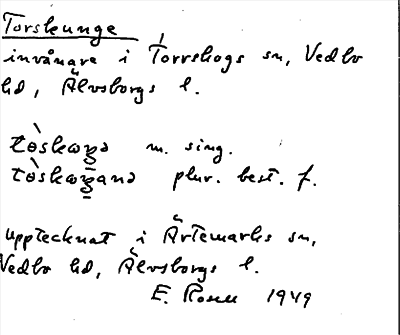 Torskunge
invånare i Torrskogs sn, Vedbo
hd, Älvsborgs l.
m. sing.
plur. best. f.
upptecknat i Ärtemarks sn,
Vedbo hd, Älvsborgs l.
E. Rosen 1949